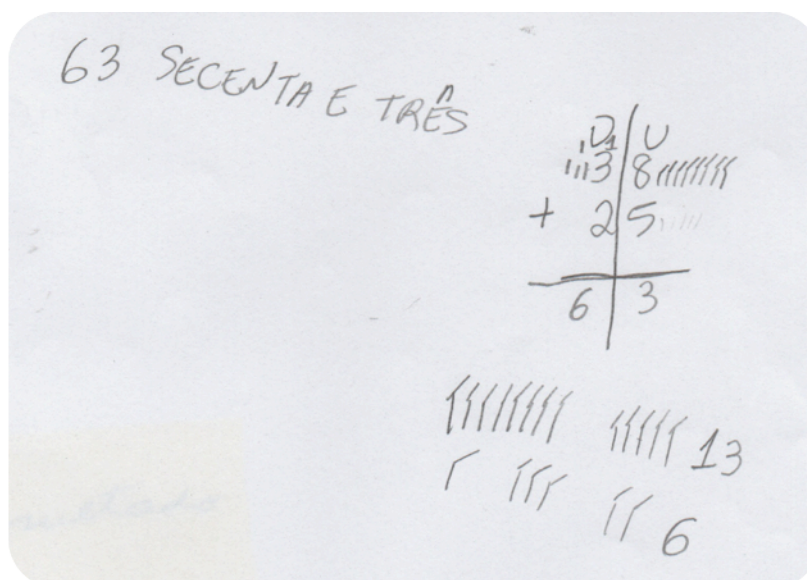 63 SECENTA E TRÊS
D U
1
3 8
+ 2 5
6 3
13
6